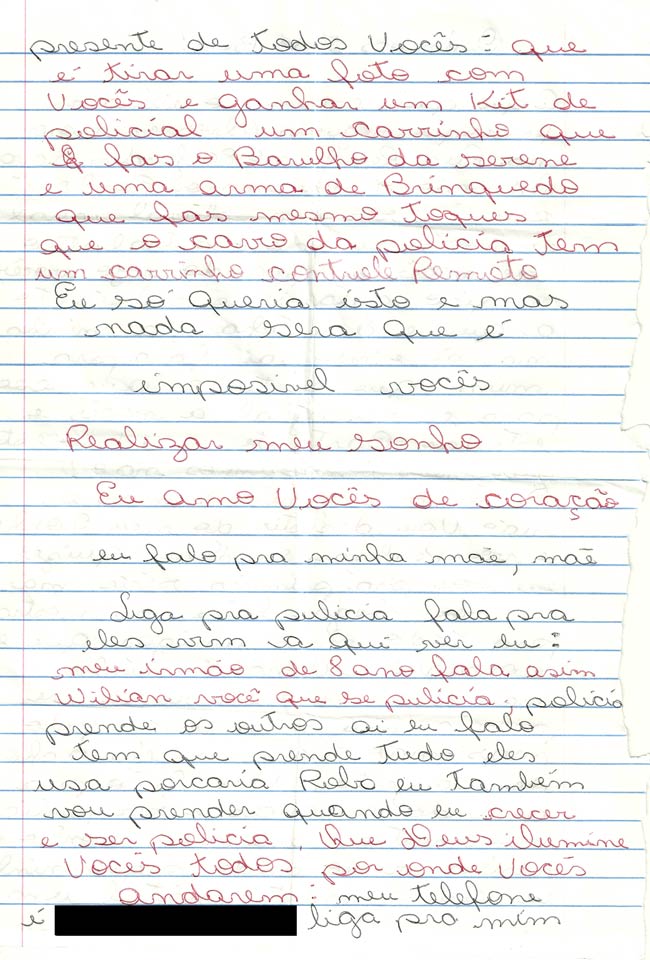 presente de todos Vocês: que
é tirar uma foto com
Vocês e ganhar um Kit de
policial um carrinho que
fas o Barulho da serene
e uma arma de Brinquedo
que fas mesmo toques
que o carro da policia tem
um carrinho controle Remoto
Eu só queria isto e mas
nada sera que é
imposivel vocês
Realizar meu sonho
Eu amo Vocês de coração
eu falo pra minha mãe, mãe
Liga pra pulicia fala pra
eles vim a qui ver eu:
meu irmão de 8 ano fala asim
Wilian você que se pulicia, policia
prende os outros ai eu falo
tem que prende tudo eles
usa porcaria Robo eu também
vou prender quando eu crecer
e ser policia, Que Deus ilumine
Vocês todos por onde Vocês
andarem: meu telefone
é liga pro mim